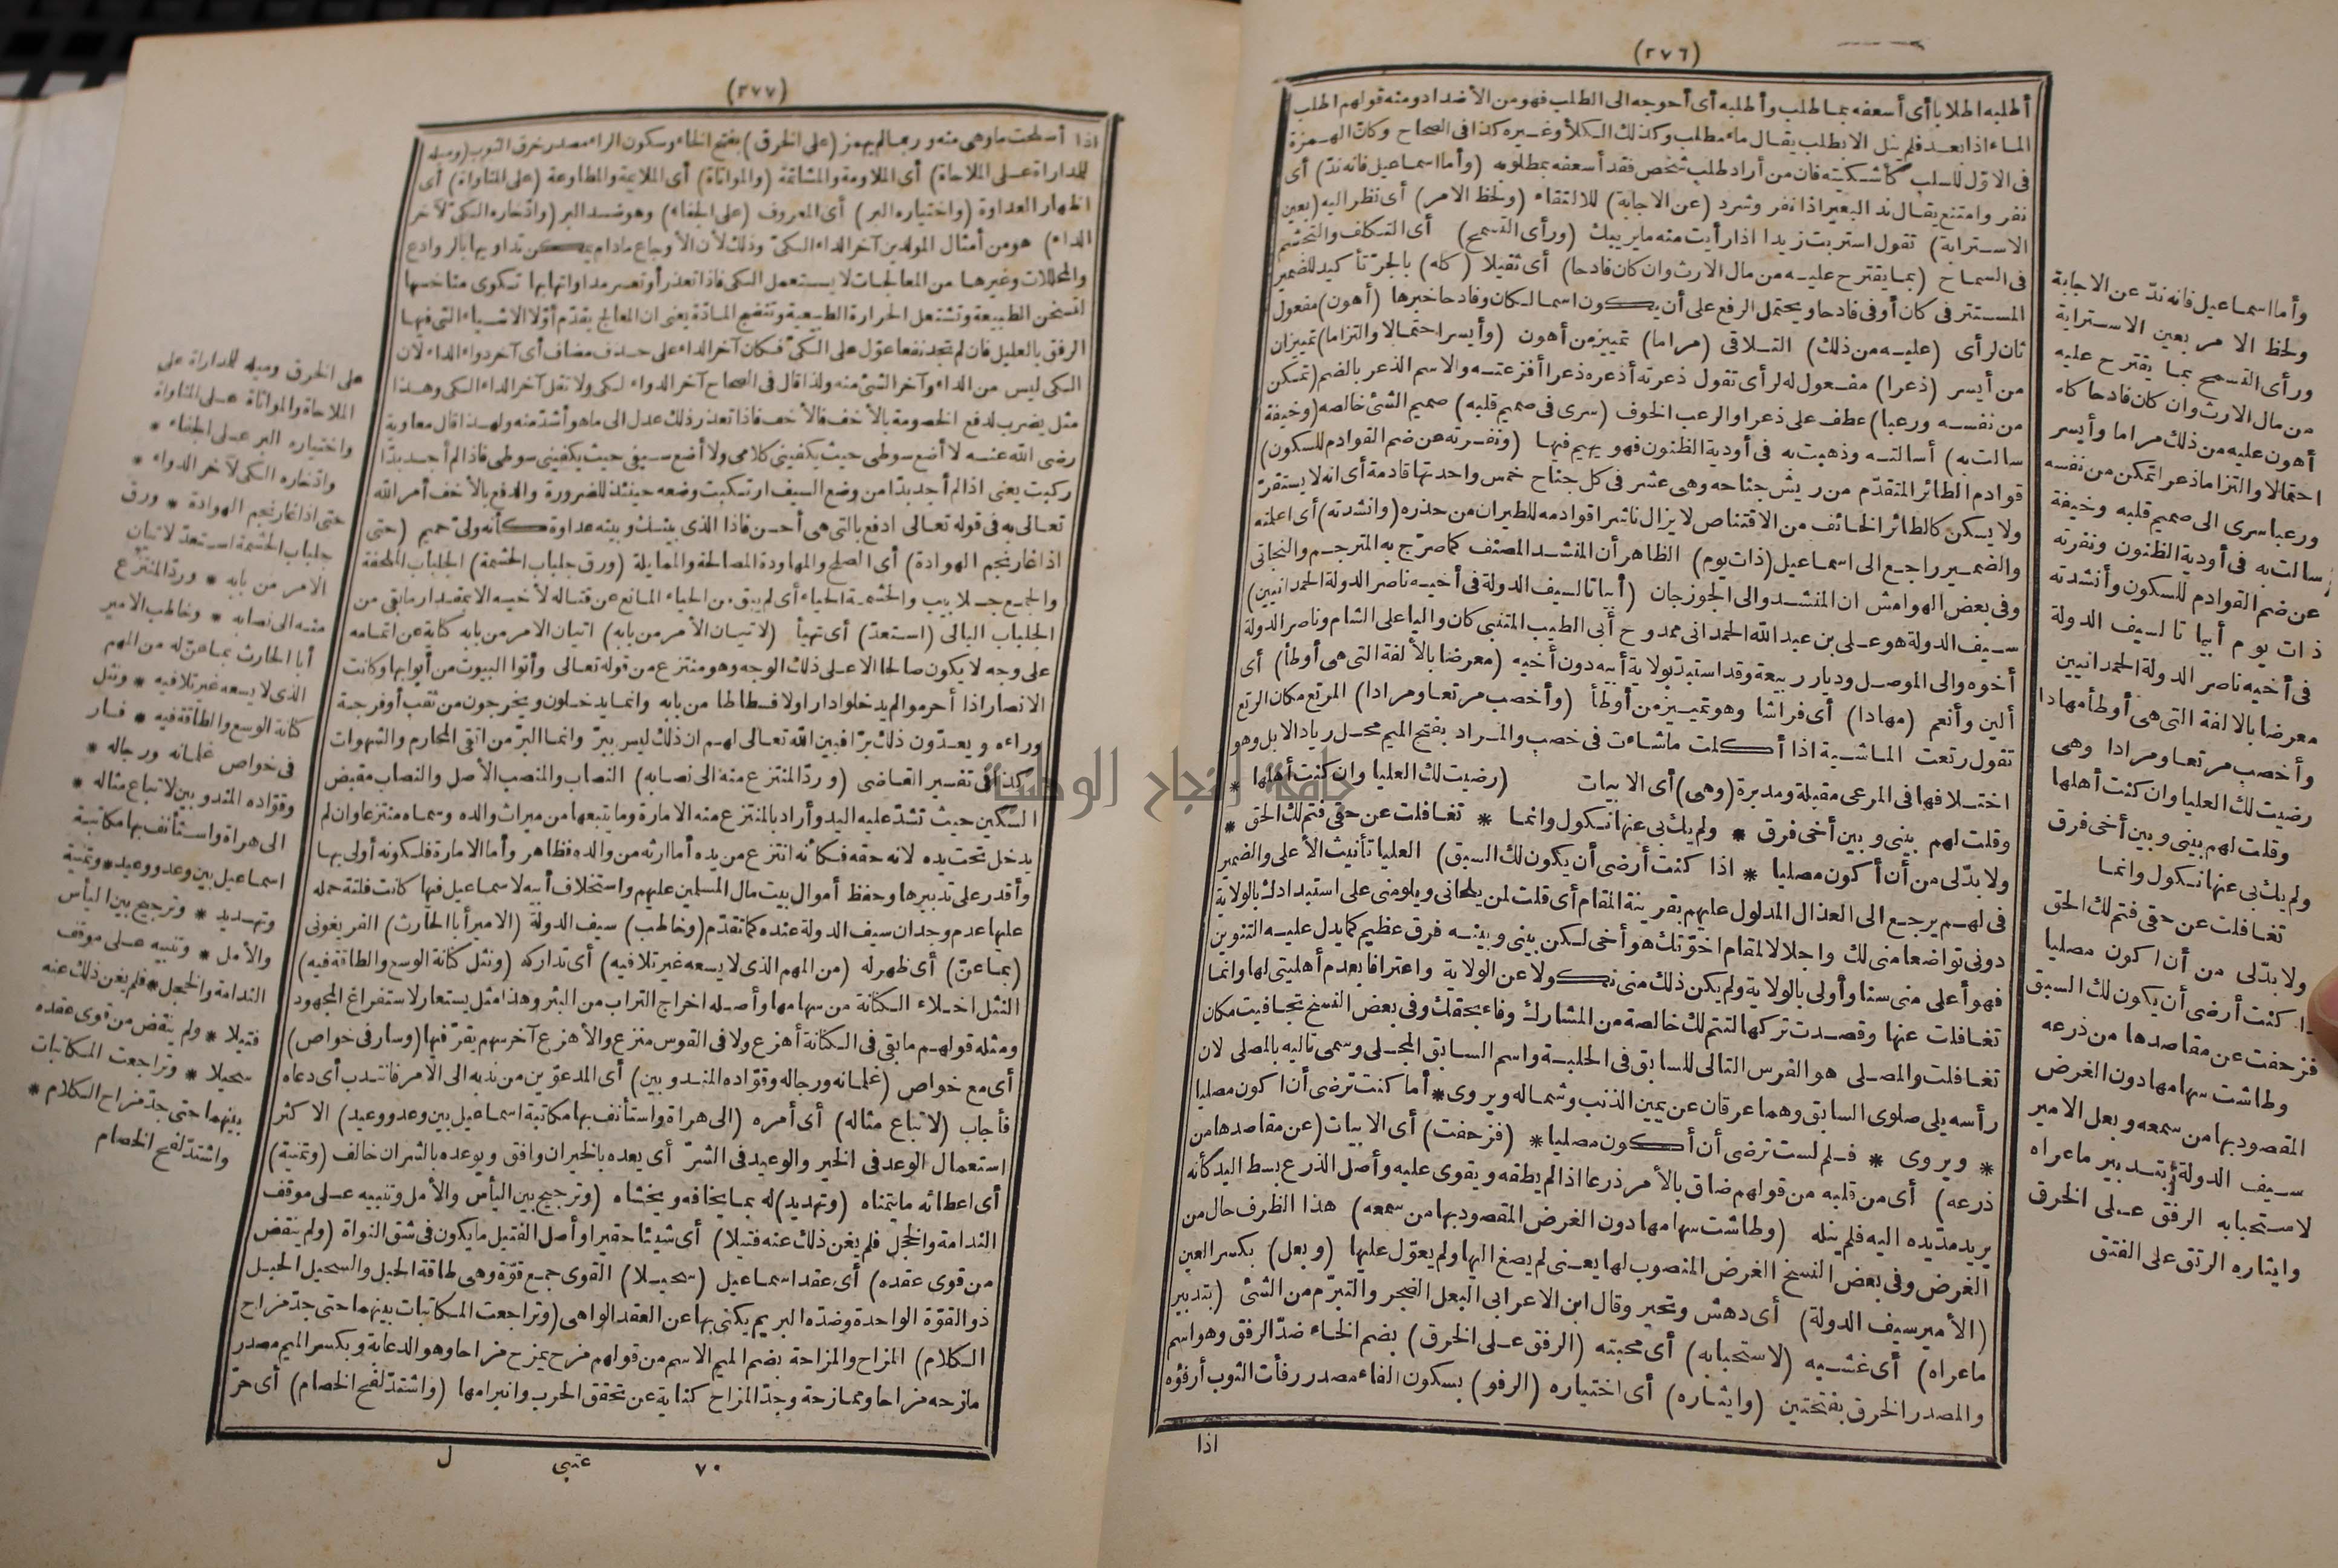 (٢٧٦)
أطلبه اطلابا أى أسعفه بما طلب وأطلبه أى أحوجه الى الطلب فهو من الأضداد ومنه قولهم اطلب
الماء اذا بعد فلم ينل الا بطلب يقال ماء مطلب وكذلك الكلأ وغيره كذا فى الصحاح وكانّ الهمزة
فى الاوّل للسلب كأشكيته فان من أراد طلب شخص فقد أسعفه بمطلوبه (وأما اسماعيل فانه ندّ) أى
نفر وامتنع يقال ند البعير اذا نفر وشرد (عن الاجابة) للالتقاء (ولحظ الامر) أى نظر اليه (بعين
الاسترابة) تقول استربت زيدا اذا رأيت منه ما يريبك (ورأى التسمح) أى التكلف والتجشم
فى السماح (بما يقترح عليه من مال الارث وان كان فادحا) أى ثقيلا (كله) بالجرّ تأكيد للضمير
المستتر فى كان أو فى فادحا ويحتمل الرفع على أن يكون اسما لكان وفادحا خبرها (أهون) مفعول
ثان لرأى (عليه من ذلك) التلاقى (مراما) تمييز من أهون (وأيسر احتمالا والتزاما) تمييزان
من أيسر (ذعرا) مفعول له لرأى تقول ذعرته أذعره ذعرا أفزعته والاسم الذعر بالضم (تمكن
من نفسه ورعبا) عطف على ذعرا والرعب الخوف (سرى فى صميم قلبه) صميم الشئ خالصه (وخيفة
سالت به) أسالته وذهبت به فى أودية الظنون فهو يهيم فيها (ونفرته عن ضم القوادم للسكون)
قوادم الطائر المتقدّم من ريش جناحه وهى عشر فى كل جناح خمس واحدتها قادمة أى انه لا يستقرّ
ولا يسكن كالطائر الخائف من الاقتناص لا يزال ناشرا قوادمه للطيران من حذره (وانشدته) أى اعلمته
والضمير راجع الى اسماعيل (ذات يوم) الظاهر أن المنشد المصنف كما صرّح به المترجم والنجاتى
وفى بعض الهوامش ان المنشد والى الجوزجان (أبياتا لسيف الدولة فى أخيه ناصر الدولة الحمدانيين)
سيف الدولة هو على بن عبد الله الحمدانى ممدوح أبى الطيب المتنبى كان واليا على الشام وناصر الدولة
أخوه والى الموصل وديار ربيعة وقد استبدّ بولاية أبيه دون أخيه (معرضا بالألفة التى هى أوطأ) أى
ألين وأنعم (مهادا) أى فراشا وهو تمييز من أوطأ (وأخصب مرتعا ومرادا) المرتع مكان الرتع
تقول رتعت الماشية اذا أكلت ما شاءت فى خصب والمراد بفتح الميم محل رياد الابل وهو
اختلافها فى المرعى مقبلة ومدبرة (وهى) أى الابيات (رضيت لك العليا وان كنت أهلها *
وقلت لهم بينى وبين أخى فرق * ولم يك بى عنها نكول وانما * تغافلت عن حقى فتم لك الحق *
ولا بدّلى من أن أكون مصليا * اذا كنت أرضى أن يكون لك السبق) العليا تأنيث الأعلى والضمير
فى لهم يرجع الى العذال المدلول عليهم بقرينة المقام أى قلت لمن يلحانى ويلومنى على استبدادك بالولاية
دونى تواضعا منى لك واجلالا لمقام اخوّتك هو أخى لكن بينى وبينه فرق عظيم كما يدل عليه التنوين
فهو أعلى منى سنا وأولى بالولاية ولم يكن ذلك منى نكولا عن الولاية واعترافا بعدم أهليتى لها وانما
تغافلت عنها وقصدت تركها لتتم لك خالصة من المشارك وفاء بحقك وفى بعض النسخ تجافيت مكان
تغافلت والمصلى هو الفرس التالى للسابق فى الحلبة واسم السابق المجلى وسمى تاليه بالمصلى لان
رأسه يلى صلوى السابق وهما عرقان عن يمين الذنب وشماله ويروى * أما كنت ترضى أن اكون مصليا
* ويروى * فلم لست ترضى أن أكون مصليا * (فزحفت) أى الابيات (عن مقاصدها من
ذرعه) أى من قلبه من قولهم ضاق بالأمر ذرعا اذا لم يطقه ويقوى عليه وأصل الذرع بسط اليد كأنه
يريد مدّ يده اليه فلم ينله (وطاشت سهامها دون الغرض المقصود بها من سمعه) هذا الظرف حال من
الغرض وفى بعض النسخ الغرض المنصوب لها يعنى لم يصغ اليها ولم يعوّل عليها (وبعل) بكسر العين
(الأمير سيف الدولة) أى دهش وتحير وقال ابن الاعرابى البعل الضجر والتبرّم من الشئ (بتدبير
ما عراه) أى غشيه (لاستحبابه) أى محبته (الرفق على الخرق) بضم الخاء ضدّ الرفق وهو اسم
والمصدر الخرق بفتحتين (وايثاره) أى اختياره (الرفو) بسكون الفاء مصدر رفأت الثوب أرفؤه
اذا
وأما اسماعيل فانه ندّ عن الاجابة
ولحظ الامر بعين الاسترابة
ورأى التسمح بما يقترح عليه
من مال الارث وان كان فادحا كله
أهون عليه من ذلك مراما وأيسر
احتمالا والتزاما ذعرا تمكن من نفسه
ورعبا سرى الى صميم قلبه وخيفة
سالت به فى أودية الظنون ونفرته
عن ضم القوادم للسكون وأنشدته
ذات يوم أبياتا لسيف الدولة
فى أخيه ناصر الدولة الحمدانيين
معرضا بالالفة التى هى أوطأ مهادا
وأخصب مرتعا ومرادا وهى
رضيت لك العليا وان كنت أهلها
وقلت لهم بينى وبين أخى فرق
ولم يك بى عنها نكول وانما
تغافلت عن حقى فتم لك الحق
ولا بدّلى من أن اكون مصليا
اذا كنت أرضى أن يكون لك السبق
فزحفت عن مقاصدها من ذرعه
وطاشت سهامها دون الغرض
المقصود بها من سمعه وبعل الامير
سيف الدولة بتدبير ما عراه
لاستحبابه الرفق على الخرق
وايثاره الرتق على الفتق
(٢٧٧)
اذا أصلحت ما وهى منه وربما لم يهمز (على الخرق) بفتح الخاء وسكون الراء مصدر خرق الثوب (وميله
للمداراة على الملاحاة) أى الملاومة والمشاتمة (والمواتاة) أى الملايمة والمطاوعة (على المناواة) أى
اظهار العداوة (واختياره البر) أى المعروف (على الجفاء) وهو ضد البر (وادّخاره الكىّ لآخر
الداء) هو من أمثال المولدين آخر الداء الكىّ وذلك لأن الأوجاع مادام يمكن تداويها بالروادع
والمحللات وغيرها من المعالجات لا يستعمل الكى فاذا تعذر أو تعسر مداواتها بها تكوى مناخسها
لتسخن الطبيعة وتشتعل الحرارة الطبيعية وتنضج المادّة يعنى ان المعالج يقدّم أوّلا الاشياء التى فيها
الرفق بالعليل فان لم تجد نفعا عوّل على الكىّ فكان آخر الداء على حذف مضاف أى آخر دواء الداء لأن
الكى ليس من الداء وآخر الشئ منه ولذا قال فى الصحاح آخر الدواء الكى ولا تقل آخر الداء الكى وهذا
مثل يضرب لدفع الخصومة بالأخف فالأخف فاذا تعذر ذلك عدل الى ما هو أشدّ منه ولهذا قال معاوية
رضى الله عنه لا أضع سوطى حيث يكفينى كلامى ولا أضع سيفى حيث يكفينى سوطى فاذا لم أجد بدّا
ركبت يعنى اذا لم أجد بدّا من وضع السيف ارتكبت وضعه حينئذ للضرورة والدفع بالأخف أمر الله
تعالى به فى قوله تعالى ادفع بالتى هى أحسن فاذا الذى بينك وبينه عداوة كأنه ولىّ حميم (حتى
اذا غار نجم الهوادة) أى الصلح والمهاودة المصالحة والممايلة (ورق جلباب الحشمة) الجلباب الملحفة
والجمع جلابيب والحشمة الحياء أى لم يبق من الحياء المانع عن قتاله لأخيه الا بمقدار ما بقى من
الجلباب البالى (استعدّ) أى تهيأ (لاتيان الأمر من بابه) اتيان الامر من بابه كناية عن اتمامه
على وجه لا يكون صالحا الا على ذلك الوجه وهو منتزع من قوله تعالى وأتوا البيوت من أبوابها وكانت
الانصار اذا أحرموا لم يدخلوا دارا ولا فسطاطا من بابه وانما يدخلون ويخرجون من نقب أو فرجة
وراءه ويعدّون ذلك برّا فبين الله تعالى لهم ان ذلك ليس ببرّ وانما البرّ من اتقى المحارم والشهوات
كذا فى تفسير القاضى (وردّ المنتزع منه الى نصابه) النصاب والمنصب الأصل والنصاب مقبض
السكين حيث تشدّ عليه اليد وأراد بالمنتزع منه الامارة وما يتبعها من ميراث والده وسماه منتزعا وان لم
يدخل تحت يده لانه حقه فكأنه انتزع من يده أما ارثه من والده فظاهر وأما الامارة فلكونه أولى بها
وأقدر على تدبيرها وحفظ أموال بيت مال المسلمين عليهم واستخلاف أبيه لاسماعيل فيها كانت فلتة حمله
عليها عدم وجدان سيف الدولة عنده كما تقدّم (وخاطب) سيف الدولة (الامير أبا الحارث) الفريغونى
(بما عنّ) أى ظهر له (من المهم الذى لا يسعه غير تلافيه) أى تداركه (ونثل كنانة الوسع والطاقة فيه)
النثل اخلاء الكنانة من سهامها وأصله اخراج التراب من البئر وهذا مثل يستعار لاستفراغ المجهود
ومثله قولهم ما بقى فى الكنانة أهزع ولا فى القوس منزع والأهزع آخر سهم يقرّ فيها (وسار فى خواص)
أى مع خواص (غلمانه ورجاله وقوّاده المندوبين) أى المدعوّين من ندبه الى الأمر فانتدب أى دعاه
فأجاب (لاتباع مثاله) أى أمره (الى هراة واستأنف بها مكاتبة اسماعيل بين وعد ووعيد) الاكثر
استعمال الوعد فى الخير والوعيد فى الشرّ أى يعده بالخير ان وافق ويوعده بالشر ان خالف (وتمنية)
أى اعطائه ما يتمناه (وتهديد) له بما يخافه ويخشاه (وترجيح بين اليأس والأمل وتنبيه على موقف
الندامة والخجل فلم يغن ذلك عنه فتيلا) أى شيئا حقيرا وأصل الفتيل ما يكون فى شق النواة (ولم ينقض
من قوى عقده) أى عقد اسماعيل (سحيلا) القوى جمع قوّة وهى طاقة الحبل والسحيل الحبل
ذو القوّة الواحدة وضدّه البريم يكنى بها عن العقد الواهى (وتراجعت المكاتبات بينهما حتى جدّ مزاح
الكلام) المزاح والمزاحة بضم الميم الاسم من قولهم مزح يمزح مزاحا وهو الدعابة وبكسر الميم مصدر
مازحه مزاحا وممازحة وجدّ المزاح كناية عن تحقق الحرب وانبرامها (واشتدّ لفح الخصام) أى حرّ
٧٠ عتبى ل
على الخرق وميله للمداراة على
الملاحاة والمواتاة على المناواة
واختياره البر على الجفاء *
وادّخاره الكى لآخر الدواء *
حتى اذا غار نجم الهوادة * ورق
جلباب الحشمة استعدّ لاتيان
الامر من بابه * وردّ المنتزع
منه الى نصابه * وخاطب الامير
أبا الحارث بما عنّ له من المهم
الذى لا يسعه غير تلافيه * ونثل
كنانة الوسع والطاقة فيه * فسار
فى خواص غلمانه ورجاله *
وقوّاده المندوبين لاتباع مثاله *
الى هراة واستأنف بها مكاتبة
اسماعيل بين وعد ووعيد * وتمنية
وتهديد * وترجيح بين اليأس
والأمل * وتنبيه على موقف
الندامة والخجل * فلم يغن ذلك عنه
فتيلا * ولم ينقض من قوى عقده
سحيلا * وتراجعت المكاتبات
بينهما حتى جدّ مزاح الكلام *
واشتدّ لفح الخصام
جامعة النجاح الوطنية